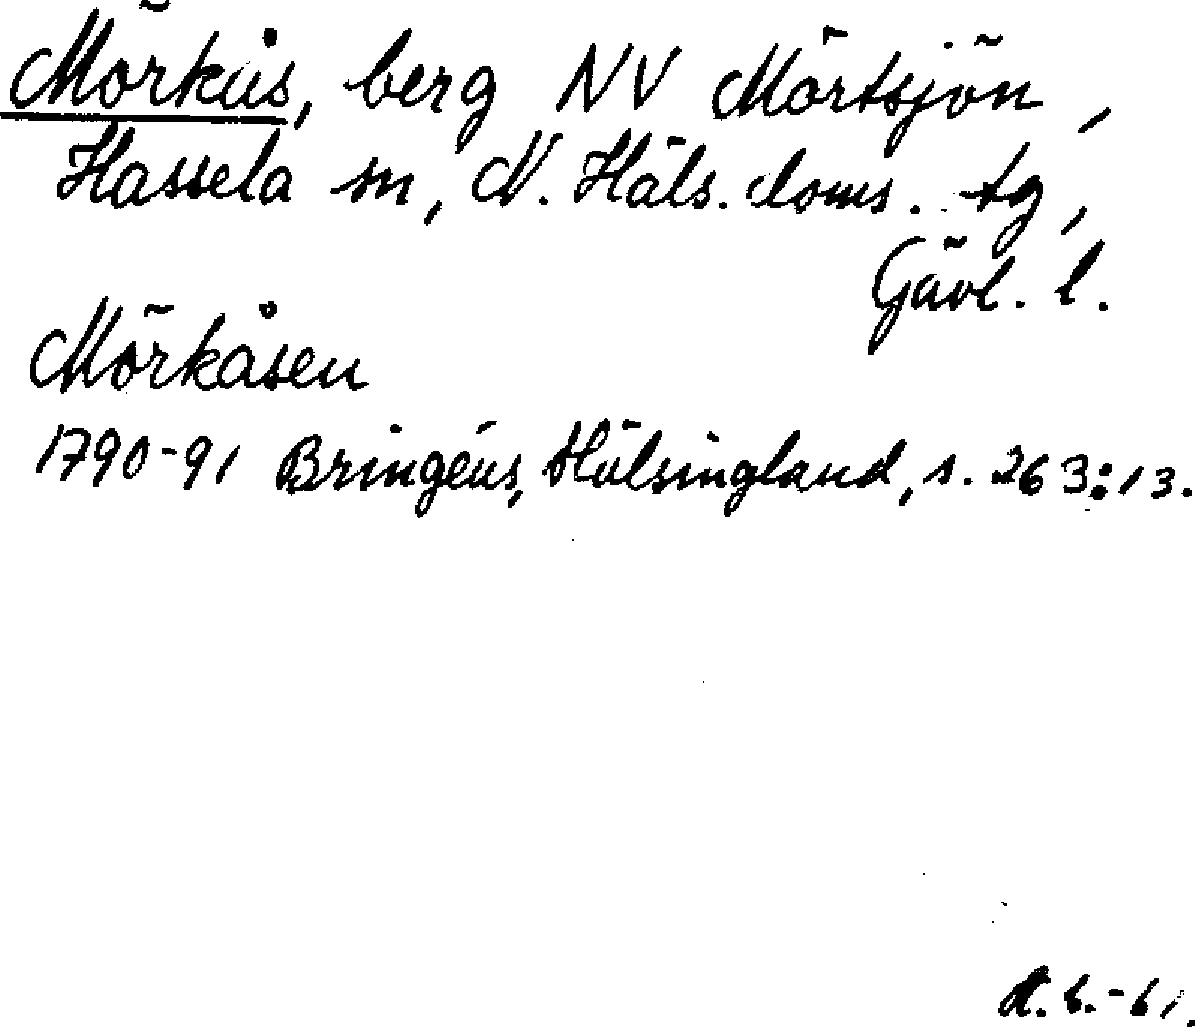 Mörkås, berg NV Mörtsjön,
Hassela sn, N. Häls. doms. tg,
Gävl. l.
Mörkåsen
1790-91 Bringéus, Hälsingland, s. 263:13.
-61.